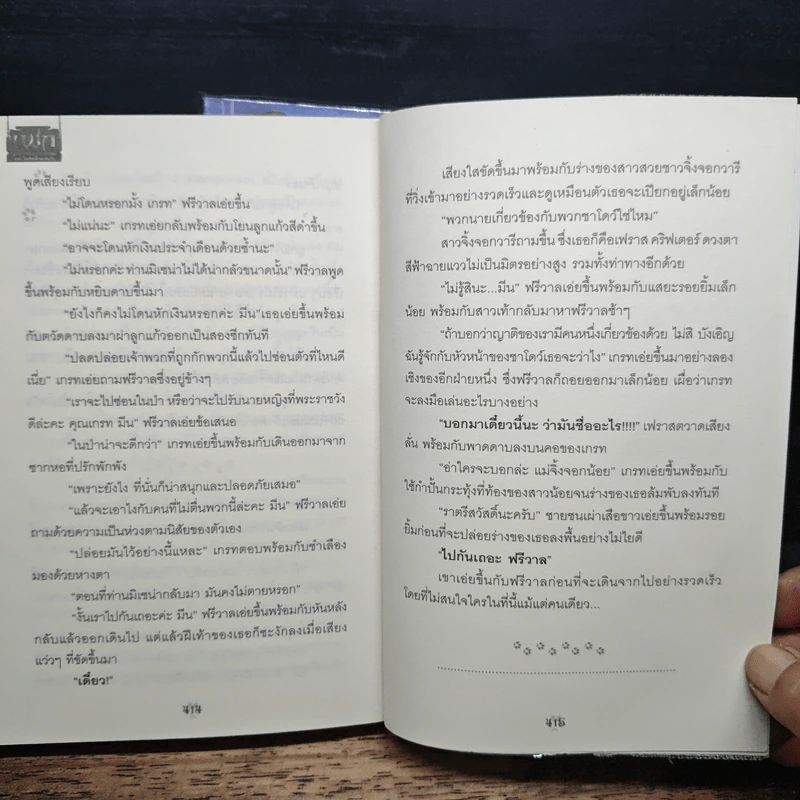 พูดเสียงเรียบ
“ไม่โดนหรอกมั้ง เกรท” ฟรีวาลเอ่ยขึ้น
“ไม่แน่นะ” เกรทเอ่ยกลับพร้อมกับโยนลูกแก้วสีดำขึ้น
“อาจจะโดนหักเงินประจำเดือนด้วยซ้ำนะ”
“ไม่หรอกค่ะ ท่านมิเซน่าไม่ได้น่ากลัวขนาดนั้น” ฟรีวาลพูด
ขึ้นพร้อมกับหยิบดาบขึ้นมา
“ยังไงก็คงไม่โดนหักเงินหรอกค่ะ มีน” เธอเอ่ยขึ้นพร้อม
กับตวัดดาบลงมาผ่าลูกแก้วออกเป็นสองซีกทันที
“ปลดปล่อยเจ้าพวกที่ถูกกักพวกนี้แล้วไปซ่อนตัวที่ไหนดี
เนี่ย” เกรทเอ่ยถามฟรีวาลซึ่งอยู่ข้างๆ
“เราจะไปซ่อนในป่า หรือว่าจะไปรับนายหญิงที่พระราชวัง
ดีล่ะคะ คุณเกรท มีน” ฟรีวาลเอ่ยข้อเสนอ
“ในป่าน่าจะดีกว่า” เกรทเอ่ยขึ้นพร้อมกับเดินออกมาจาก
ซากหอที่ปรักพักพัง
“เพราะยังไง ที่นั่นก็น่าสนุกและปลอดภัยเสมอ”
“แล้วจะเอาไงกับคนที่ไม่ตื่นพวกนี้ล่ะคะ มีน” ฟรีวาลเอ่ย
ถามด้วยความเป็นห่วงตามนิสัยของตัวเอง
“ปล่อยมันไว้อย่างนี้แหละ” เกรทตอบพร้อมกับชำเลือง
มองด้วยหางตา
“ตอนที่ท่านมิเซน่ากลับมา มันคงไม่ตายหรอก”
“งั้นเราไปกันเถอะค่ะ มีน” ฟรีวาลเอ่ยขึ้นพร้อมกับหันหลัง
กลับแล้วออกเดินไป แต่แล้วฝีเท้าของเธอก็ชะงักลงเมื่อเสียง
แว่วๆ ที่ขัดขึ้นมา
“เดี๋ยว!”
414
เสียงใสขัดขึ้นมาพร้อมกับร่างของสาวสวยชาวจิ้งจอกวารี
ที่วิ่งเข้ามาอย่างรวดเร็วและดูเหมือนตัวเธอจะเปียกอยู่เล็กน้อย
“พวกนายเกี่ยวข้องกับพวกชาโดว์ใช่ไหม”
สาวจิ้งจอกวารีถามขึ้น ซึ่งเธอก็คือเฟราส คริฟเตอร์ ดวงตา
สีฟ้าฉายแววไม่เป็นมิตรอย่างสูง รวมทั้งท่าทางอีกด้วย
“ไม่รู้สินะ...มีน” ฟรีวาลเอ่ยขึ้นพร้อมกับแสยะรอยยิ้มเล็ก
น้อย พร้อมกับสาวเท้ากลับมาหาฟรีวาลช้าๆ
“ถ้าบอกว่าญาติของเรามีคนหนึ่งเกี่ยวข้องด้วย ไม่สิ บังเอิญ
ฉันรู้จักกับหัวหน้าของชาโดว์เธอจะว่าไง” เกรทเอ่ยขึ้นมาอย่างลอง
เชิงของอีกฝ่ายหนึ่ง ซึ่งฟรีวาลก็ถอยออกมาเล็กน้อย เผื่อว่าเกรท
จะลงมือเล่นอะไรบางอย่าง
“บอกมาเดี๋ยวนี้นะ ว่ามันชื่ออะไร!!!!” เฟราสตวาดเสียง
ลั่น พร้อมกับพาดดาบลงบนคอของเกรท
“อ่าใครจะบอกล่ะ แม่จิ้งจอกน้อย” เกรทเอ่ยขึ้นพร้อมกับ
ใช้กำปั้นกระทุ้งที่ท้องของสาวน้อยจนร่างของเธอล้มพับลงทันที
“ราตรีสวัสดิ์นะครับ” ชายชนเผ่าเสือขาวเอ่ยขึ้นพร้อมรอย
ยิ้มก่อนที่จะปล่อยร่างของเธอลงพื้นอย่างไม่ไยดี
“ไปกันเถอะ ฟรีวาล”
เขาเอ่ยขึ้นกับฟรีวาลก่อนที่จะเดินจากไปอย่างรวดเร็ว
โดยที่ไม่สนใจใครในที่นี้แม้แต่คนเดียว...
415